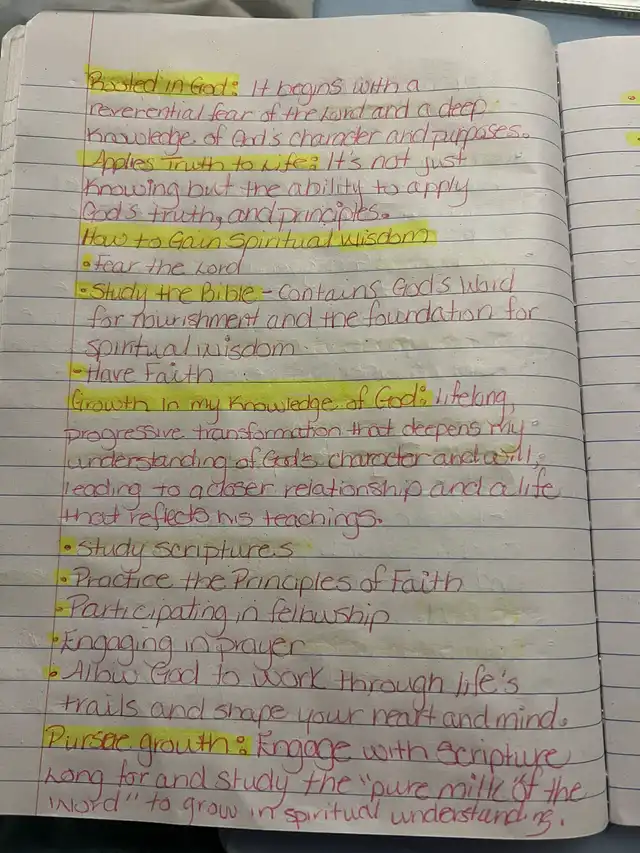 Rooted in God: It begins with a
reverential fear of the Lord and a deep
Knowledge of God's character and purposes.
Applies Truth to Life: It's not just
Knowing but the ability to apply
God's truth, and principles.
How to Gain Spiritual Wisdom
• Fear the Lord
• Study the Bible - Contains God's Word
for nourishment and the foundation for
spiritual wisdom.
- Have Faith
Growth In my Knowledge of God: Lifelong,
progressive transformation that deepens my
understanding of God's character and will,
leading to a closer relationship and a life
that reflects his teachings.
• Study scriptures
• Practice the Principles of Faith
• Participating in fellowship
• Engaging in prayer
• Allow God to work through life's
trails and shape your heart and mind.
Pursae growth: Engage with Scripture
Long for and study the "pure milk of the
Word" to grow in spiritual understanding.